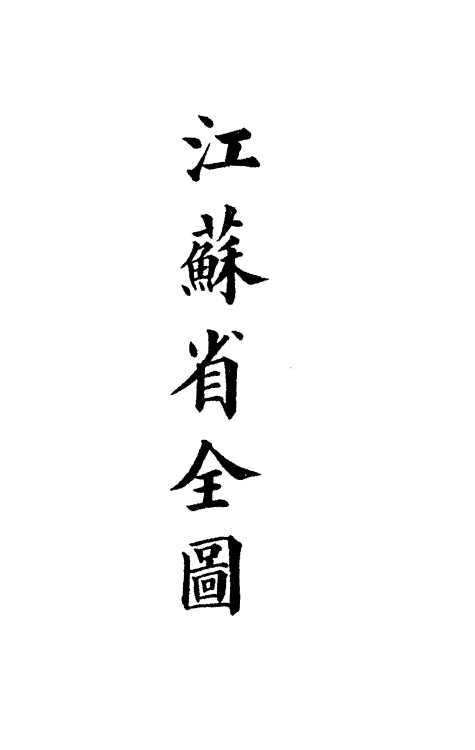 江蘇省全圖